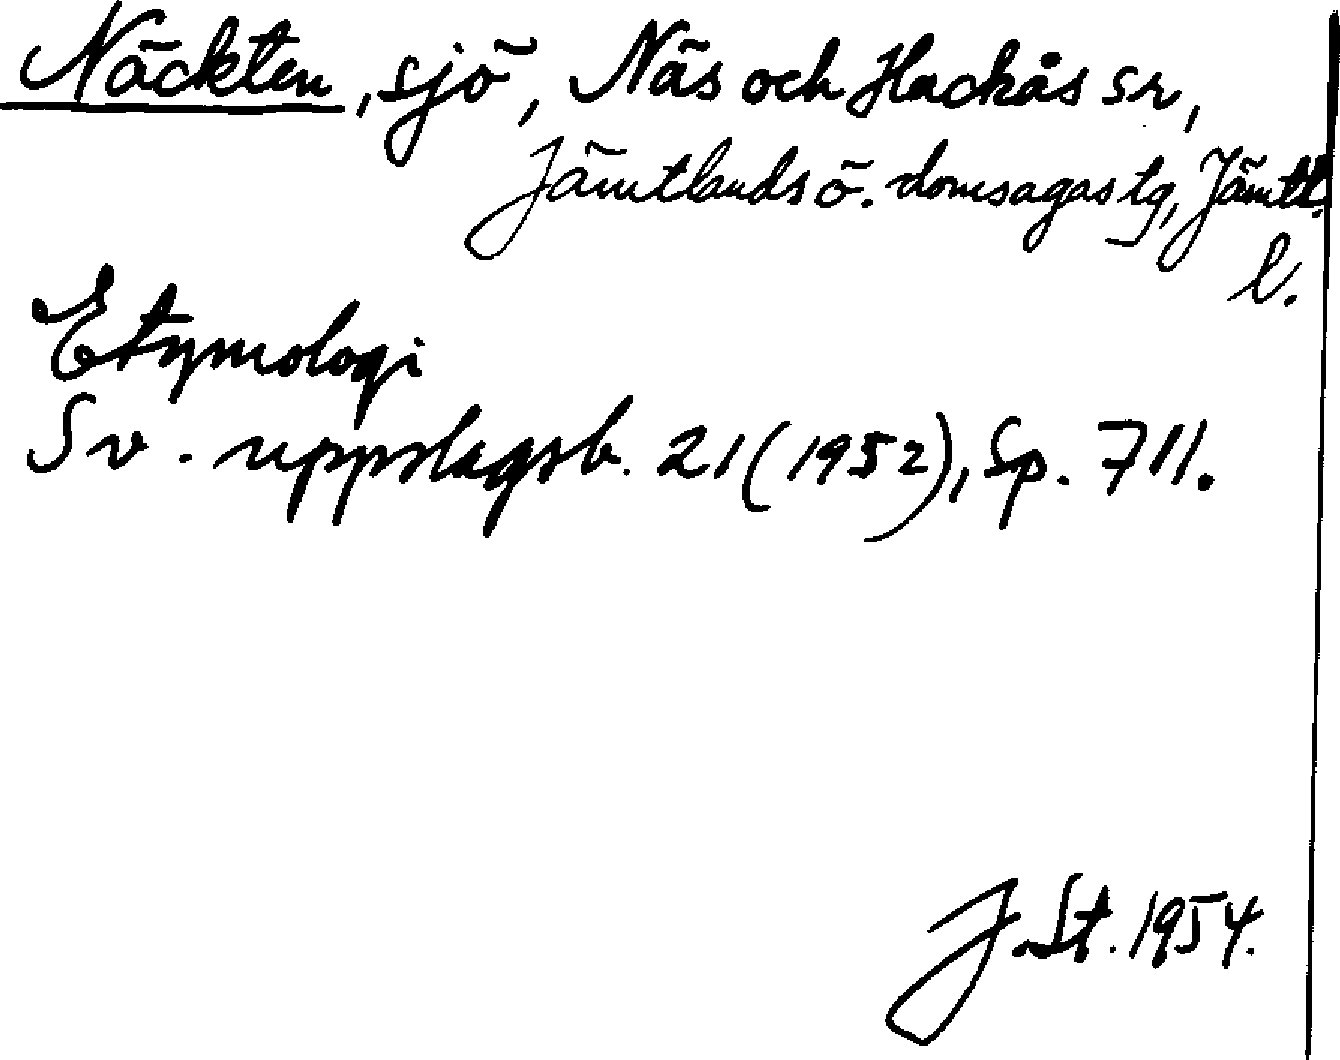 Näckten, sjö, Näs och Hackås sr,
Jämtlands ö. domsagas tg, Jämtl.
l.
Etymologi
Sv. uppslagsb. 21 (1952), Sp. 711.
J. St. 1954.